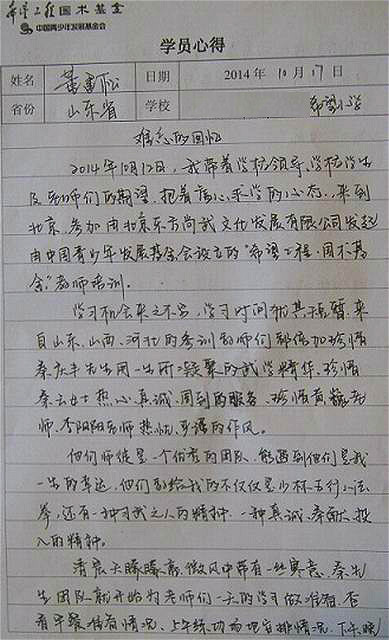 希望工程国术基金
中国青少年发展基金会
学员心得
姓名 董 松 日期 2014年10月17日
省份 山东省 学校 希望小学
难忘的回忆
2014年10月12日，我带着学校领导、学校学生
及老师们的期望，抱着信心，求学的心态，来到
北京，参加由北京东方尚武文化发展有限公司发起
由中国青少年发展基金会设立的“希望工程·国术基
金”教师培训。
学习机会来之不易，学习时间尤其短暂，来
自山东、山西、河北的参训教师们都倍加珍惜
秦庆丰先生用一生所凝聚的武学精华，珍惜
秦云女士热心、真诚、周到的服务，珍惜黄 老
师、李阳阳老师热忱、 的作风。
他们师徒是一个优秀的团队，能遇到他们是我
一生的幸运，他们教给我的不仅仅是少林五行八法
拳，还有一种习武之人的精神，一种真诚、奉献、投
入的精神。
清晨天朦朦亮，微风中带有一丝寒意，秦先
生团队就开始为老师们一天的学习做准备，查
看早餐准备情况、上午练功场地安排情况、下午、晚